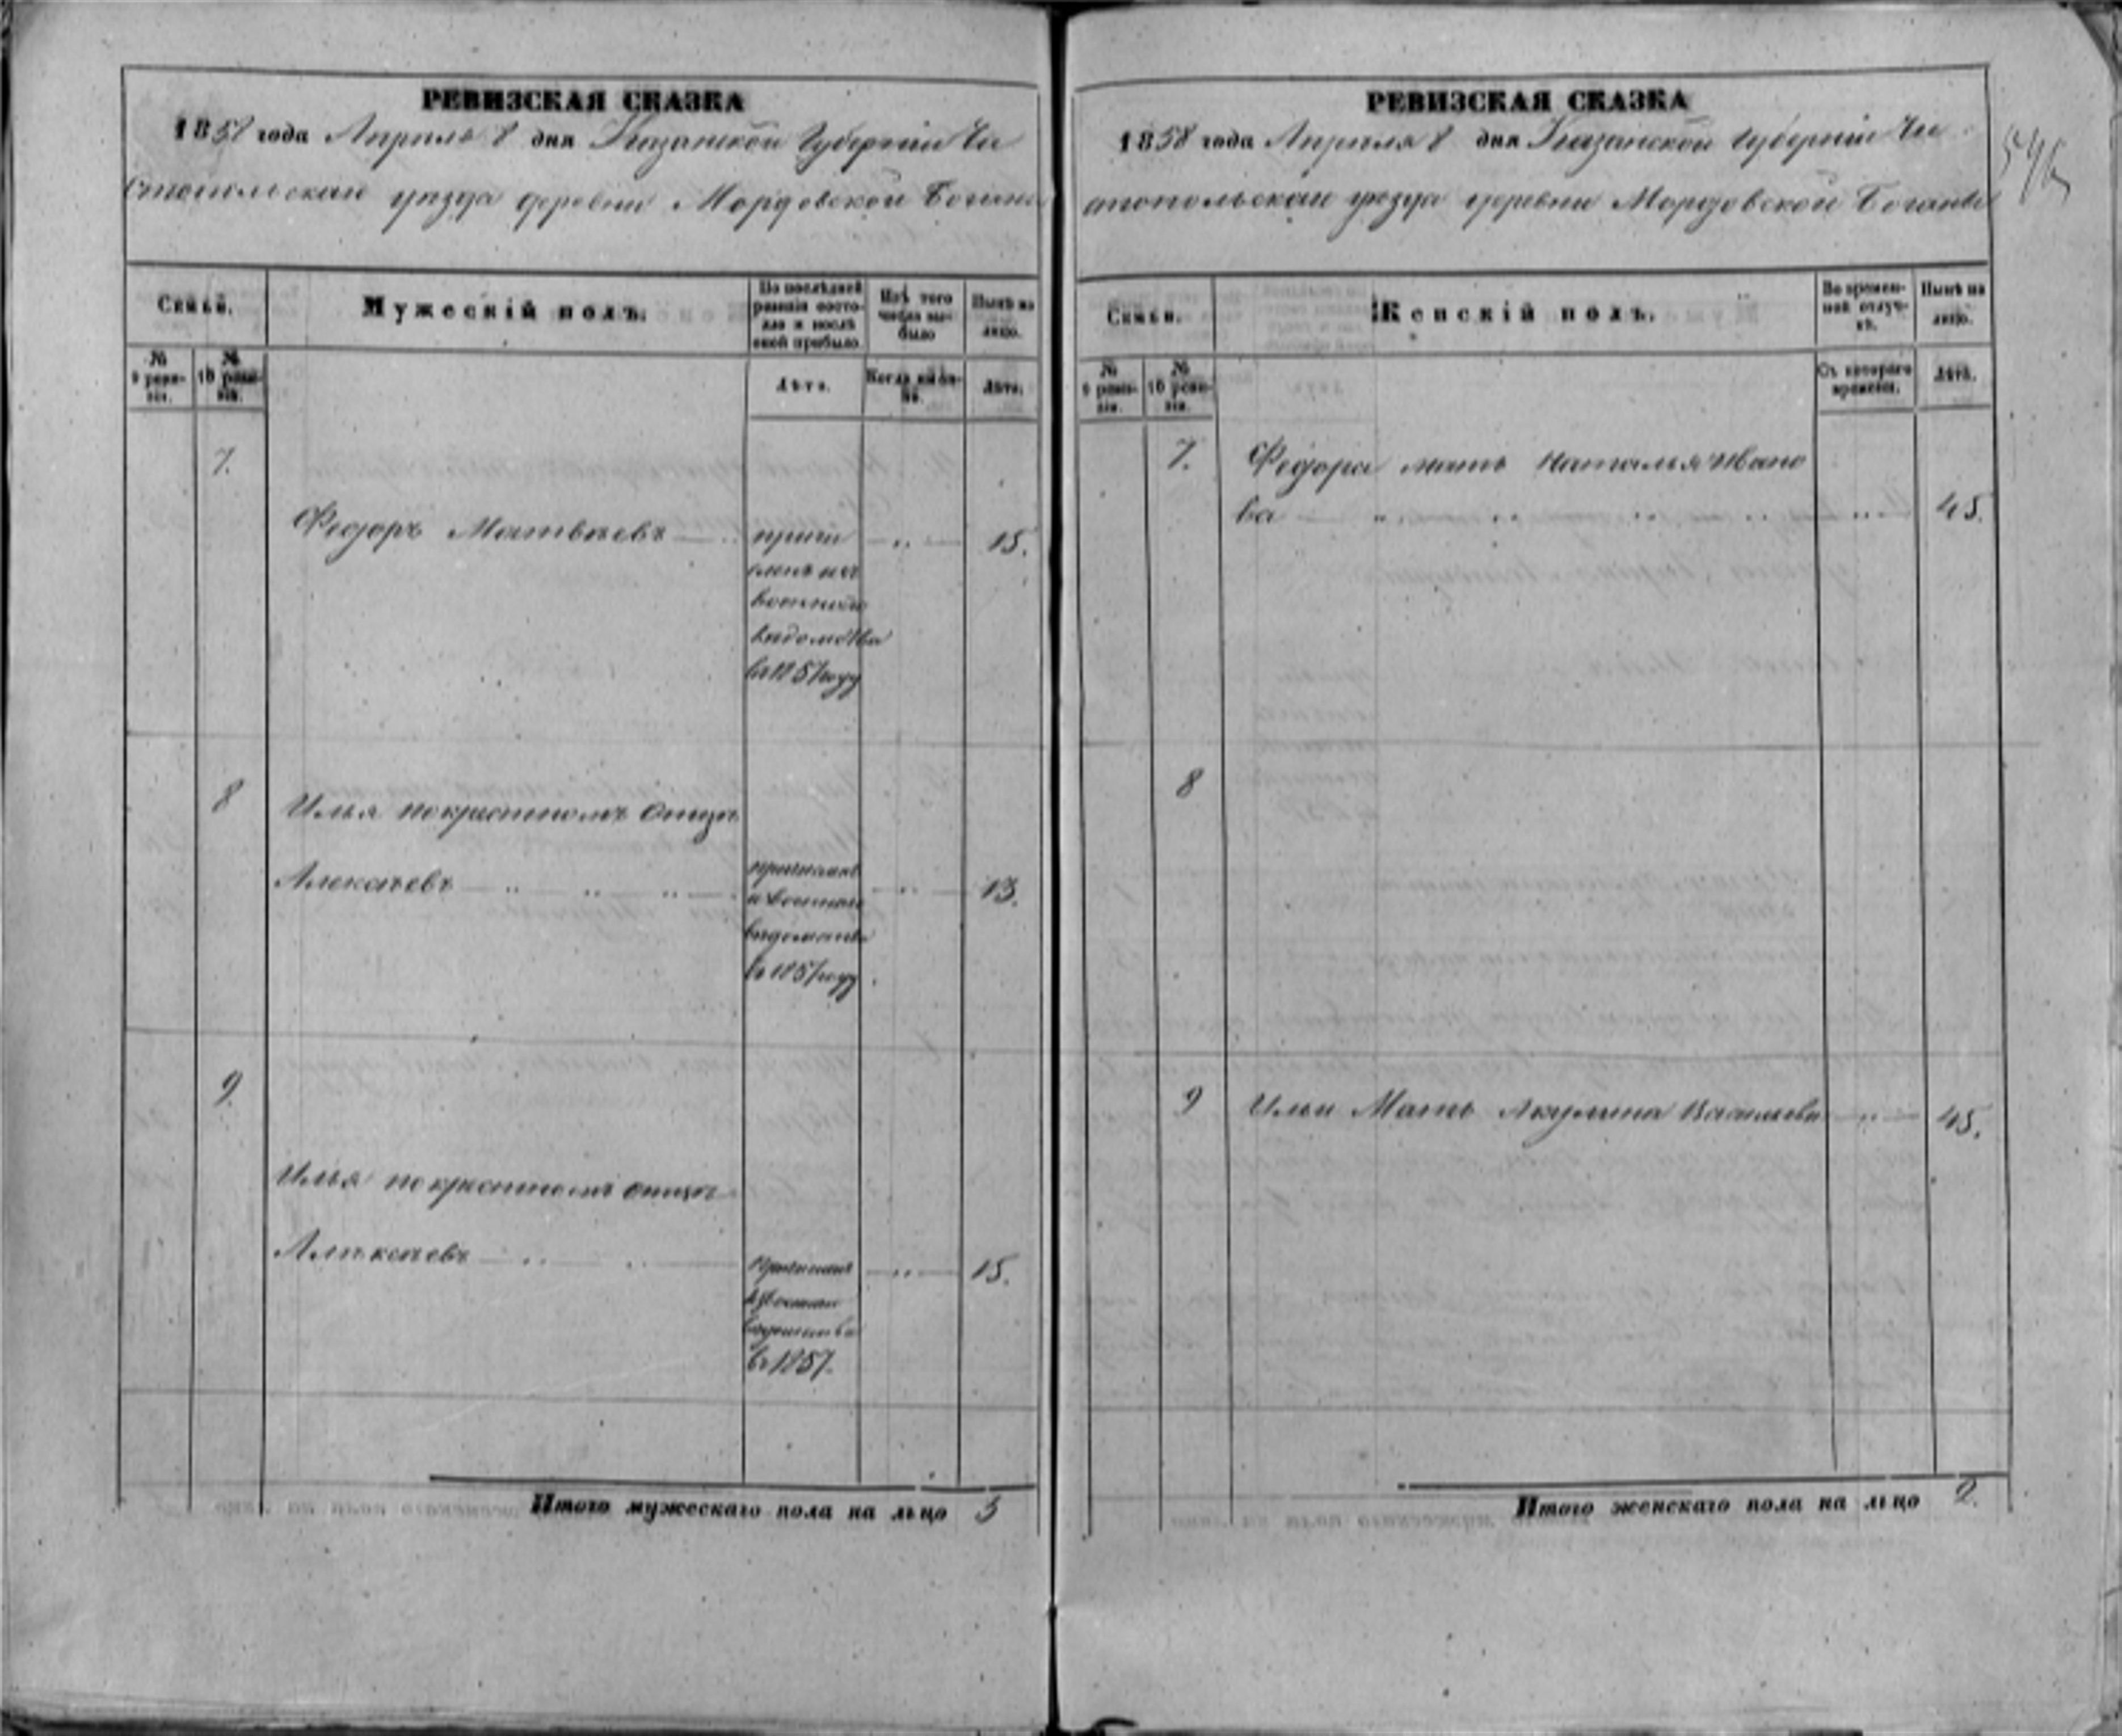 РЕВИЗСКАЯ СКАЗКА
1858 года Апреля 8 дня Казанской Губернии Чи
стопольскаи уезда деревни Мордовской
Семьи.
Мужескій полъ.
По послѣдней ревизіи состояло и послѣ оной прибыло
Изъ того числа выбыло
Нынѣ на лицо.
№ 9 ревизіи.
№ 10 ревизіи.
Лѣта.
Когда именно.
Лѣта.
7.
Федоръ Матвѣевъ
15.
военнаго
ведомства
въ 1857 году
8
Илья по крестномъ отцѣ
Алексѣевъ
13.
ведомства
въ 1857 году
9.
Илья по крестномъ отцѣ
Алексѣевъ
15.
ведомства
въ 1857.
Итого мужескаго пола на лицо 3
РЕВИЗСКАЯ СКАЗКА
1858 года Апреля 8 дня Казанской Губернии Чи
стопольскаи уезда деревни Мордовской
546
Семьи.
Женскій полъ.
Во временной отлучкѣ.
Нынѣ на лицо.
№ 9 ревизіи.
№ 10 ревизіи.
Съ котораго времени.
Лѣта.
7.
Федора мать Наталья Ивано
ва
45.
8
9
Ильи Мать Акулина Васильева
45.
Итого женскаго пола на лицо 2.